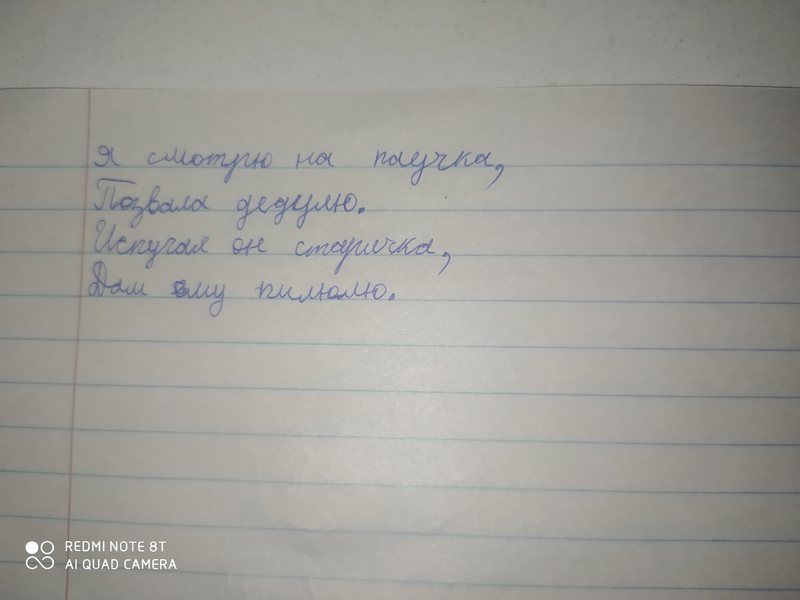 Я смотрю на паучка,
Позвала дедулю.
Испугал он старичка,
Дам ему пилюлю.
REDMI NOTE 8T
AI QUAD CAMERA